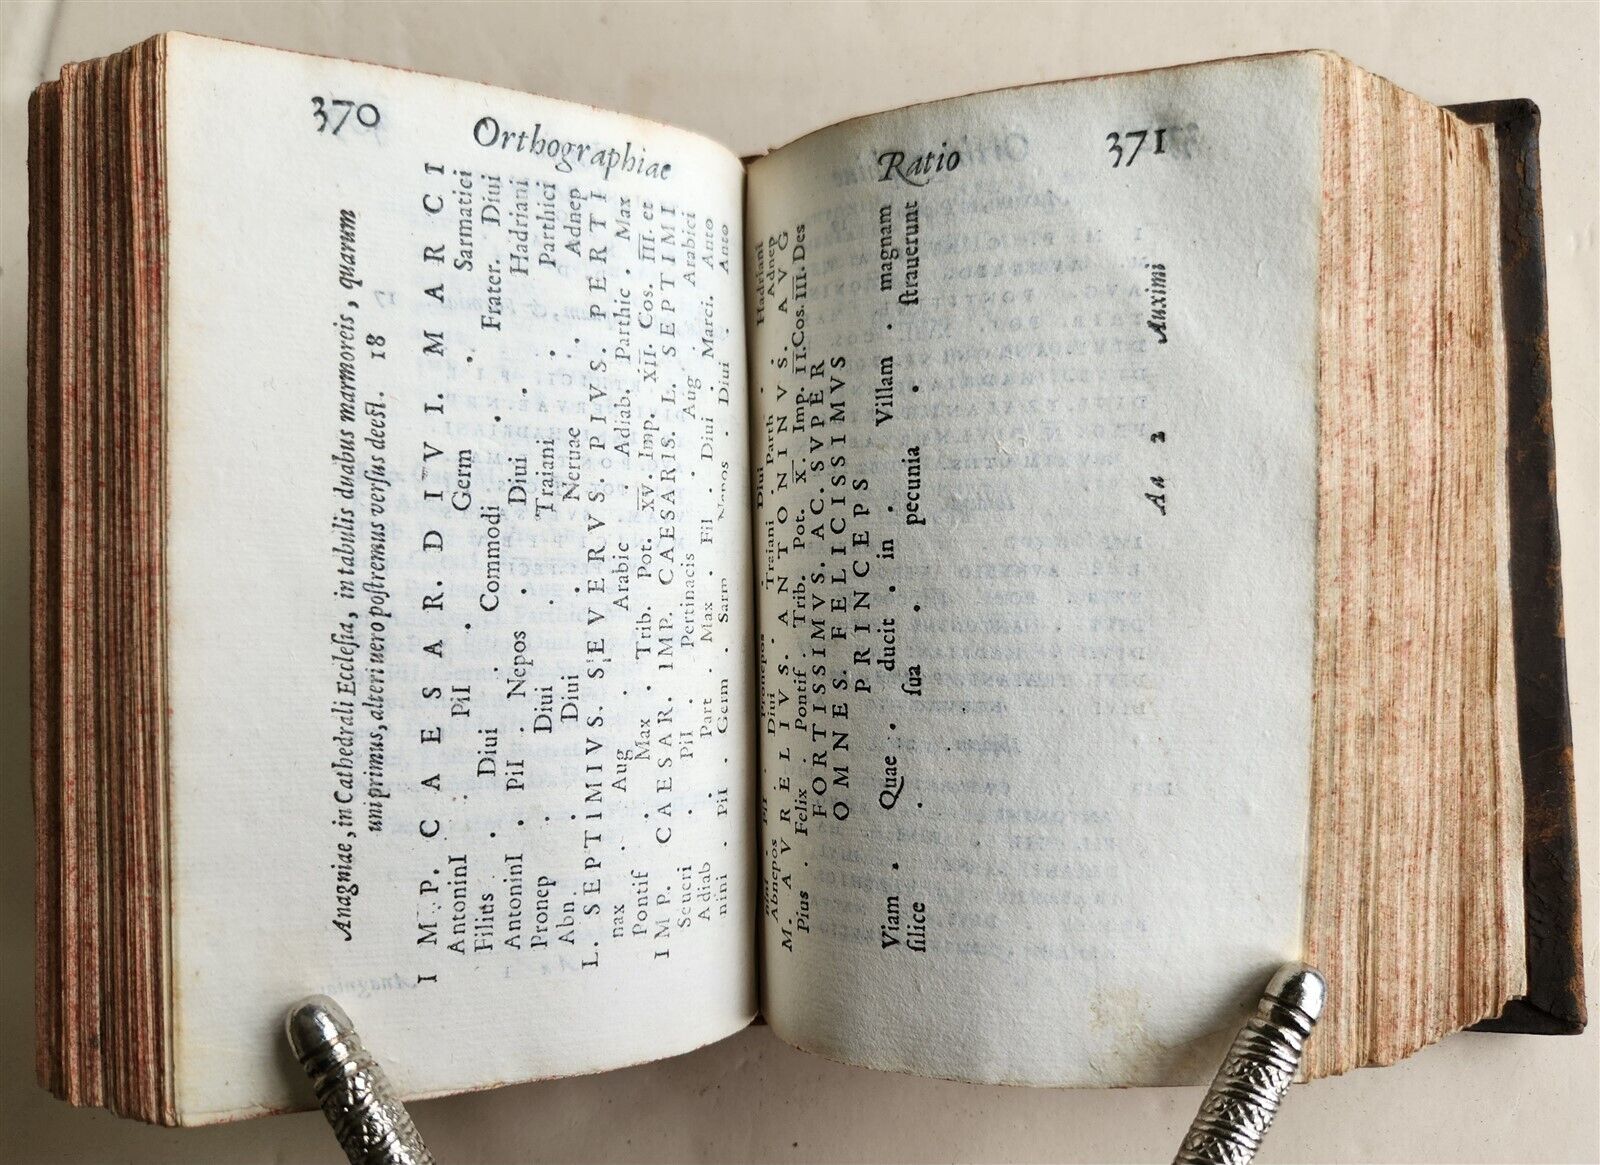 370
Orthographiae
Anagniae, in Cathedrali Ecclesia, in tabulis duabus marmoreis, quarum
uni primus, alteri uero postremus uersus deest. 18
I M P. C A E S A R. D I V I. M A R C I
AntoninI . PiI . Germ . Sarmatici
Filius . Diui . Commodi . Frater. Diui
AntoninI . PiI . Nepos . Diui . Hadriani
Pronep . Diui . Traiani . Parthici
Abn . Diui . Neruae . Adnep
L. SEPTIMIVS. SEVERVS. PIVS. PERTI
nax . Aug . Arabic . Adiab. Parthic . Max
Pontif . Max . Trib. Pot. XV. Imp. XII. Cos. III. et
IMP. CAESAR. IMP. CAESARIS. L. SEPTIMI
Seueri . PiI . Pertinacis . Aug . Arabici
Adiab . Part . Max . Fil . Diui . Marci. Anto
nini . PiI . Germ . Sarm . Nepos . Diui . Anto
Ratio
371
nini . PI . Diui . Pronepos . Diui . Hadriani
Abnepos . Diui . Traiani . Parth . Adnep
M. AVRELIVS. ANTONINVS. AVG
Pius . Felix . Pontif . Trib. Pot. X. Imp. II. Cos. III. Des
FORTISSIMVS. AC. SVPER
OMNES. FELICISSIMVS
PRINCEPS
Viam . Quae . ducit . in . Villam . magnam
silice . sua . pecunia . strauerunt
Aa 2 Auximi